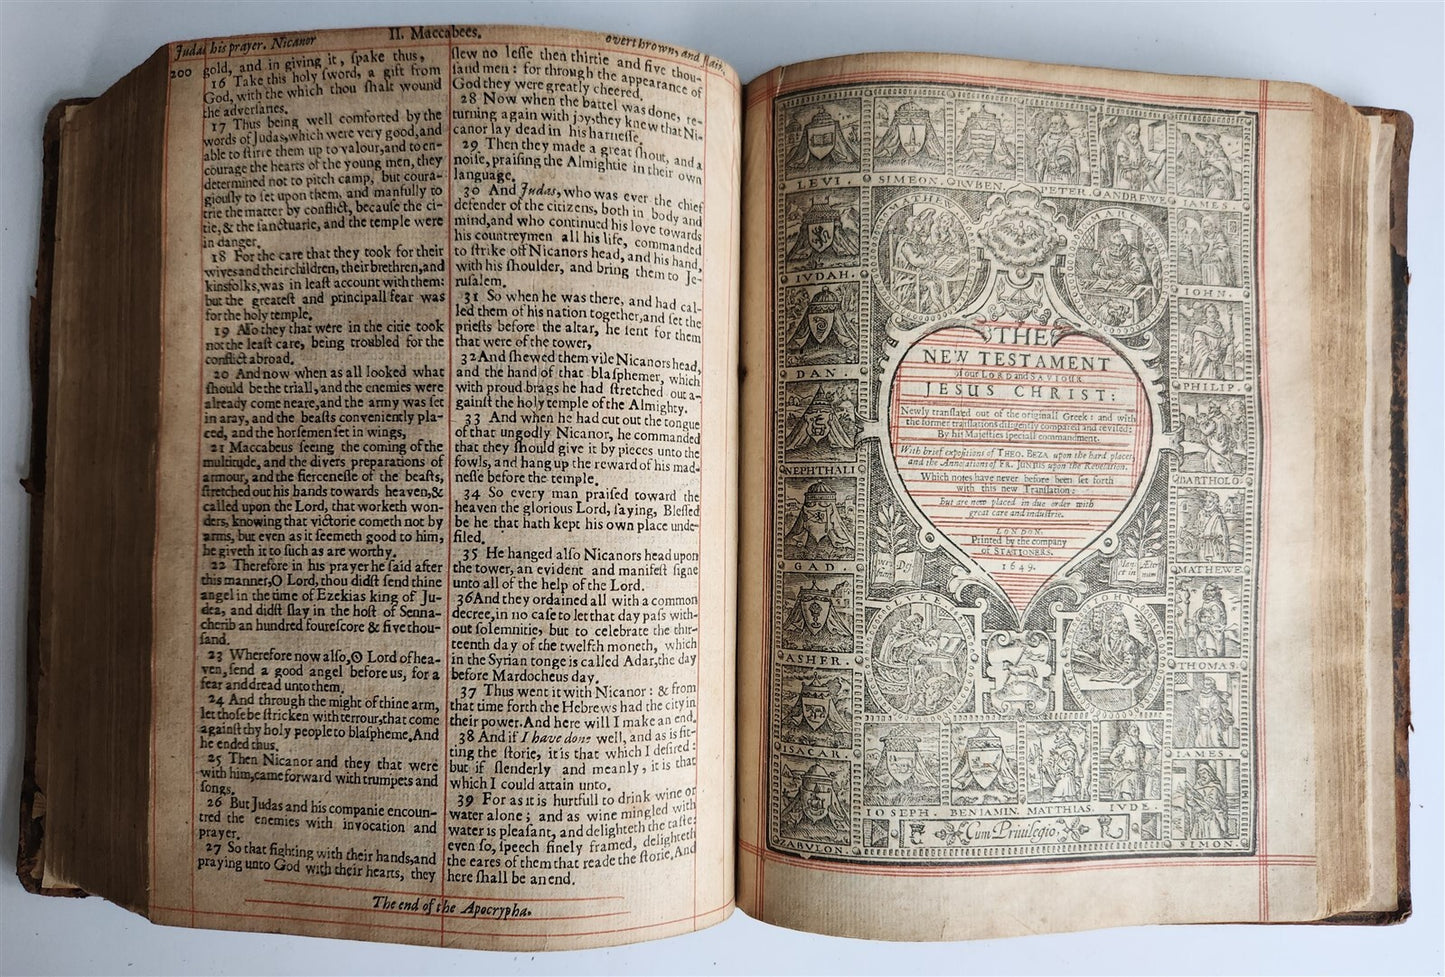 Judas his prayer. Nicanor
II. Maccabees.
overthrown, and slain.
200
gold, and in giving it, ſpake thus,
16 Take this holy ſword, a gift from
God, with the which thou ſhalt wound
the adverſaries.
17 Thus being well comforted by the
words of Judas, which were very good, and
able to ſtirre them up to valour, and to en-
courage the hearts of the young men, they
determined not to pitch camp, but coura-
giouſly to ſet upon them, and manfully to
trie the matter by conflict, becauſe the ci-
tie, & the ſanctuarie, and the temple were
in danger.
18 For the care that they took for their
wives and their children, their brethren, and
kinsfolks, was in leaſt account with them:
but the greateſt and principall fear was
for the holy temple.
19 Alſo they that were in the citie took
not the leaſt care, being troubled for the
conflict abroad.
20 And now when as all looked what
ſhould be the triall, and the enemies were
already come neare, and the army was ſet
in aray, and the beaſts conveniently pla-
ced, and the horſemen ſet in wings,
21 Maccabeus ſeeing the coming of the
multitude, and the divers preparations of
armour, and the fierceneſſe of the beaſts,
ſtretched out his hands towards heaven, &
called upon the Lord, that worketh won-
ders, knowing that victorie cometh not by
arms, but even as it ſeemeth good to him,
he giveth it to ſuch as are worthy.
22 Therefore in his prayer he ſaid after
this manner, O Lord, thou didſt ſend thine
angel in the time of Ezekias king of Ju-
dea, and didſt ſlay in the hoſt of Senna-
cherib an hundred foureſcore & five thou-
ſand.
23 Wherefore now alſo, O Lord of hea-
ven, ſend a good angel before us, for a
fear and dread unto them.
24 And through the might of thine arm,
let thoſe be ſtricken with terrour, that come
againſt thy holy people to blaſpheme. And
he ended thus.
25 Then Nicanor and they that were
with him, came forward with trumpets and
ſongs.
26 But Judas and his companie encoun-
tred the enemies with invocation and
prayer.
27 So that fighting with their hands, and
praying unto God with their hearts, they
ſlew no leſſe then thirtie and five thou-
ſand men: for through the appearance of
God they were greatly cheered.
28 Now when the battel was done, re-
turning again with joy, they knew that Ni-
canor lay dead in his harneſſe.
29 Then they made a great ſhout, and a
noiſe, praiſing the Almightie in their own
language.
30 And Judas, who was ever the chief
defender of the citizens, both in body and
mind, and who continued his love towards
his countreymen all his life, commanded
to ſtrike off Nicanors head, and his hand,
with his ſhoulder, and bring them to Je-
ruſalem.
31 So when he was there, and had cal-
led them of his nation together, and ſet the
prieſts before the altar, he ſent for them
that were of the tower,
32 And ſhewed them vile Nicanors head,
and the hand of that blaſphemer, which
with proud brags he had ſtretched out a-
gainſt the holy temple of the Almighty.
33 And when he had cut out the tongue
of that ungodly Nicanor, he commanded
that they ſhould give it by pieces unto the
fowls, and hang up the reward of his mad-
neſſe before the temple.
34 So every man praiſed toward the
heaven the glorious Lord, ſaying, Bleſſed
be he that hath kept his own place unde-
filed.
35 He hanged alſo Nicanors head upon
the tower, an evident and manifeſt ſigne
unto all of the help of the Lord.
36 And they ordained all with a common
decree, in no caſe to let that day paſs with-
out ſolemnitie, but to celebrate the thir-
teenth day of the twelfth moneth, which
in the Syrian tonge is called Adar, the day
before Mardocheus day.
37 Thus went it with Nicanor: & from
that time forth the Hebrews had the city in
their power. And here will I make an end.
38 And if I have done well, and as is fit-
ting the ſtorie, it is that which I deſired:
but if ſlenderly and meanly, it is that
which I could attain unto.
39 For as it is hurtfull to drink wine or
water alone; and as wine mingled with
water is pleaſant, and delighteth the taſte:
even ſo, ſpeech finely framed, delighteth
the eares of them that reade the ſtorie. And
here ſhall be an end.
The end of the Apocrypha.
LEVI. SIMEON. RVBEN. PETER. ANDREWE IAMES.
MATHEW
MARC
IVDAH.
IOHN.
DAN.
PHILIP.
NEPHTHALI
BARTHOLO
GAD.
MATHEWE
ASHER.
THOMAS.
ISACAR.
IAMES.
ZABVLON.
SIMON.
THE
NEW TESTAMENT
of our LORD and SAVIOUR
JESUS CHRIST:
Newly translated out of the originall Greek: and with
the former translations diligently compared and revised:
By his Majesties speciall commandment.
With brief expositions of THEO. BEZA upon the hard places,
and the Annotations of FR. JUNIUS upon the Revelation.
Which notes have never before been set forth
with this new Translation:
But are now placed in due order with
great care and industrie.
LONDON:
Printed by the company
of STATIONERS.
1649.
LVKE
IOHN
IOSEPH. BENIAMIN. MATTHIAS. IVDE.
Cum Priuilegio,
R